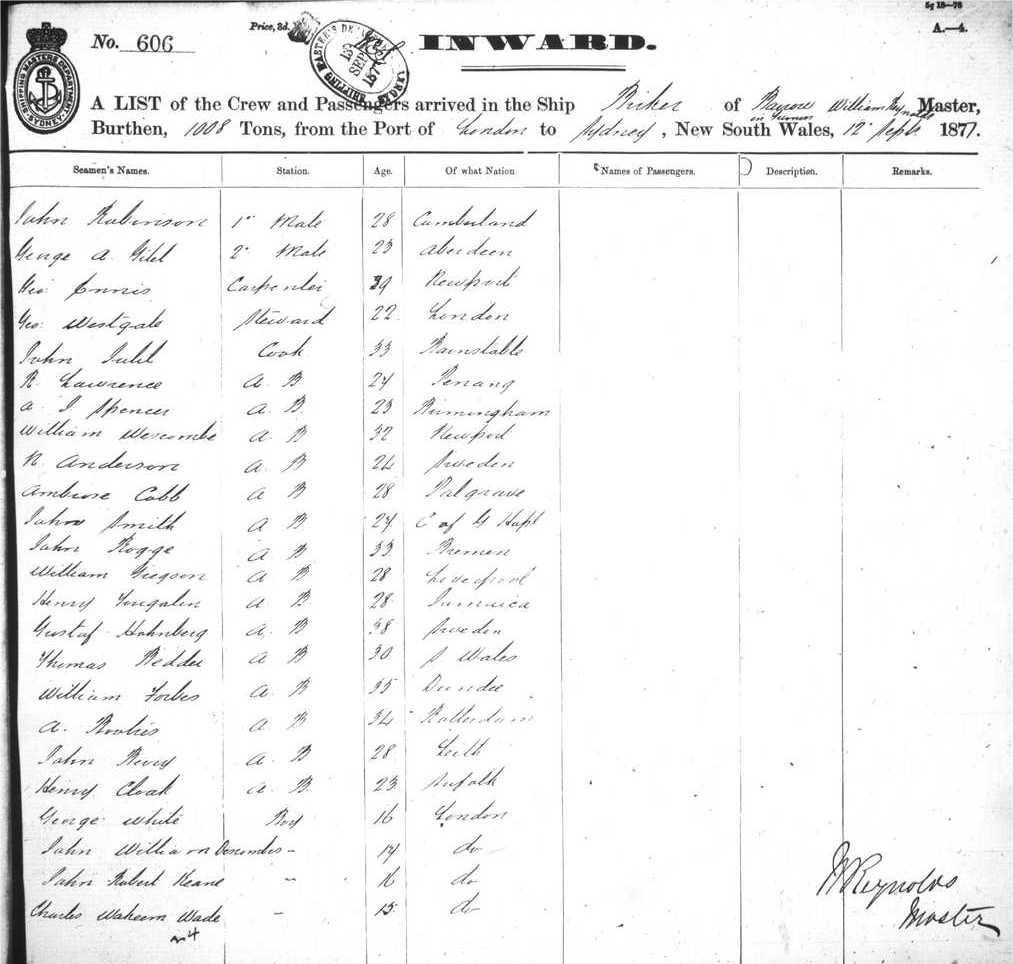 5g 18—76
A.—4.
Price, 3d.
No. 606
SHIPPING MASTER'S DEPARTMENT SYDNEY
SHIPPING MASTER'S SEP 187 SYDNEY
INWARD.
A LIST of the Crew and Passengers arrived in the Ship of Barrow in Furness William Reynolds Master,
Burthen, 1008 Tons, from the Port of London to Sydney, New South Wales, 12 Sept 1877.
Seamen's Names. Station. Age. Of what Nation Names of Passengers. Description. Remarks.
John Robinson 1st Mate 28 Cumberland
George A. 2 Mate 23 Aberdeen
Geo Ennis Carpenter 39 Newport
Geo: Westgate Steward 22 London
John Cook 33 Barnstable
R. Lawrence A. B 27 Penang
A. J Spencer A. B. 23 Birmingham
William Wescombe A. B 32 Newport
N. Anderson A. B 24 Sweden
Ambrose Cobb A B 28 Palgrave
John Smith A B 27 C of G Hope
John Rogge A B 33 Bremen
William Gregson A. B 28 Liverpool
Henry A. B. 28 Jamaica
Gustaf Hohnberg A. B 38 Sweden
Thomas A B 30 S Wales
William Forbes A. B 35 Dundee
A. A B 34 Rotterdam
John A. B 28 Leith
Henry Cloak A. B. 23 Suffolk
George White Boy 16 London
John William Descombes - 17 do
John Robert Keane - 16 do
Charles Wade - 15 do
24
W Reynolds
Master